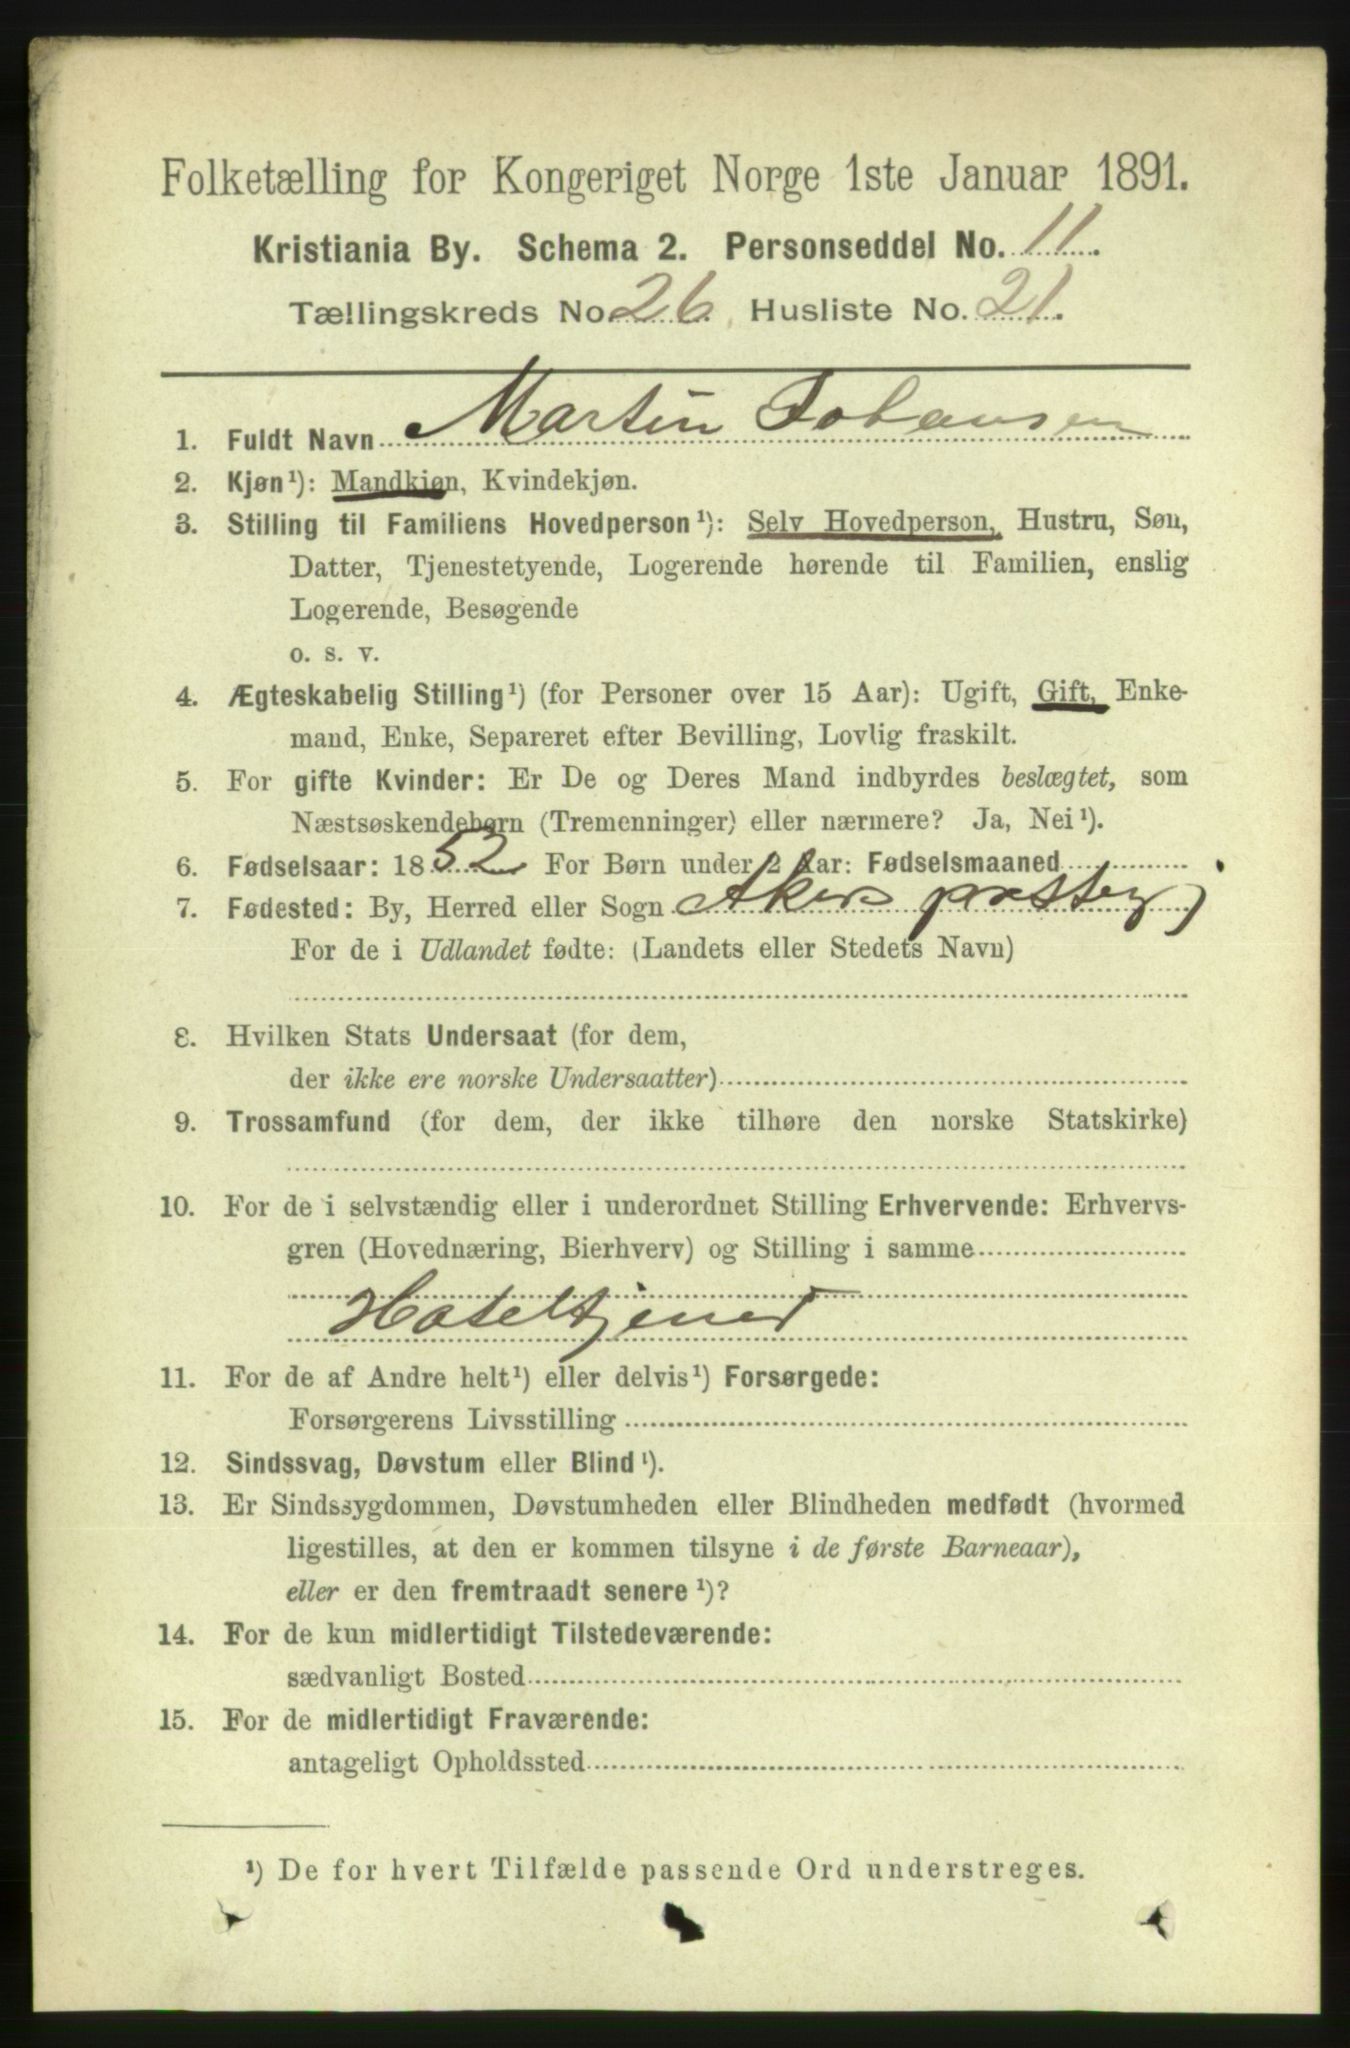 Folketælling for Kongeriget Norge 1ste Januar 1891.
Kristiania By. Schema 2. Personseddel No. 11.
Tællingskreds No. 26. Husliste No. 21.
1. Fuldt Navn Martin Johansen
2. Kjøn¹): Mandkjøn, Kvindekjøn.
3. Stilling til Familiens Hovedperson¹): Selv Hovedperson, Hustru, Søn,
Datter, Tjenestetyende, Logerende hørende til Familien, enslig
Logerende, Besøgende
o. s. v.
4. Ægteskabelig Stilling¹) (for Personer over 15 Aar): Ugift, Gift, Enke-
mand, Enke, Separeret efter Bevilling, Lovlig fraskilt.
5. For gifte Kvinder: Er De og Deres Mand indbyrdes beslægtet, som
Næstsøskendebørn (Tremenninger) eller nærmere? Ja, Nei¹).
6. Fødselsaar: 1852 For Børn under 2 Aar: Fødselsmaaned
7. Fødested: By, Herred eller Sogn Akers prestegj.
For de i Udlandet fødte: (Landets eller Stedets Navn)
8. Hvilken Stats Undersaat (for dem,
der ikke ere norske Undersaatter)
9. Trossamfund (for dem, der ikke tilhøre den norske Statskirke)
10. For de i selvstændig eller i underordnet Stilling Erhvervende: Erhvervs-
gren (Hovednæring, Bierhverv) og Stilling i samme
Hoteltjener
11. For de af Andre helt¹) eller delvis¹) Forsørgede:
Forsørgerens Livsstilling
12. Sindssvag, Døvstum eller Blind¹).
13. Er Sindssygdommen, Døvstumheden eller Blindheden medfødt (hvormed
ligestilles, at den er kommen tilsyne i de første Barneaar),
eller er den fremtraadt senere¹)?
14. For de kun midlertidigt Tilstedeværende:
sædvanligt Bosted
15. For de midlertidigt Fraværende:
antageligt Opholdssted
¹) De for hvert Tilfælde passende Ord understreges.